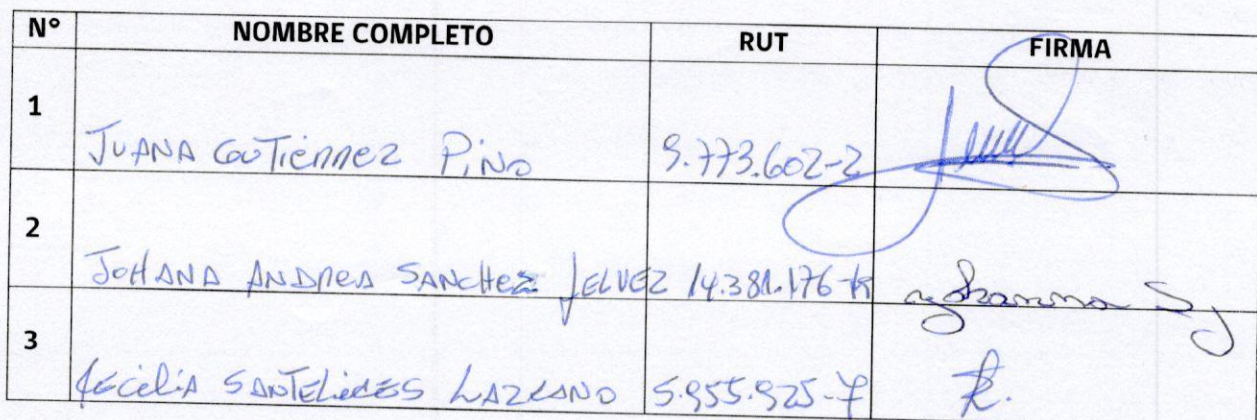 N° NOMBRE COMPLETO RUT FIRMA
1 JUANA GUTIERREZ PINO 9.773.602-2
2 JOHANA ANDREA SANCHEZ JELVEZ 14.381.176-K
3 CECILIA SANTELICES LAZCANO 5.955.925-7